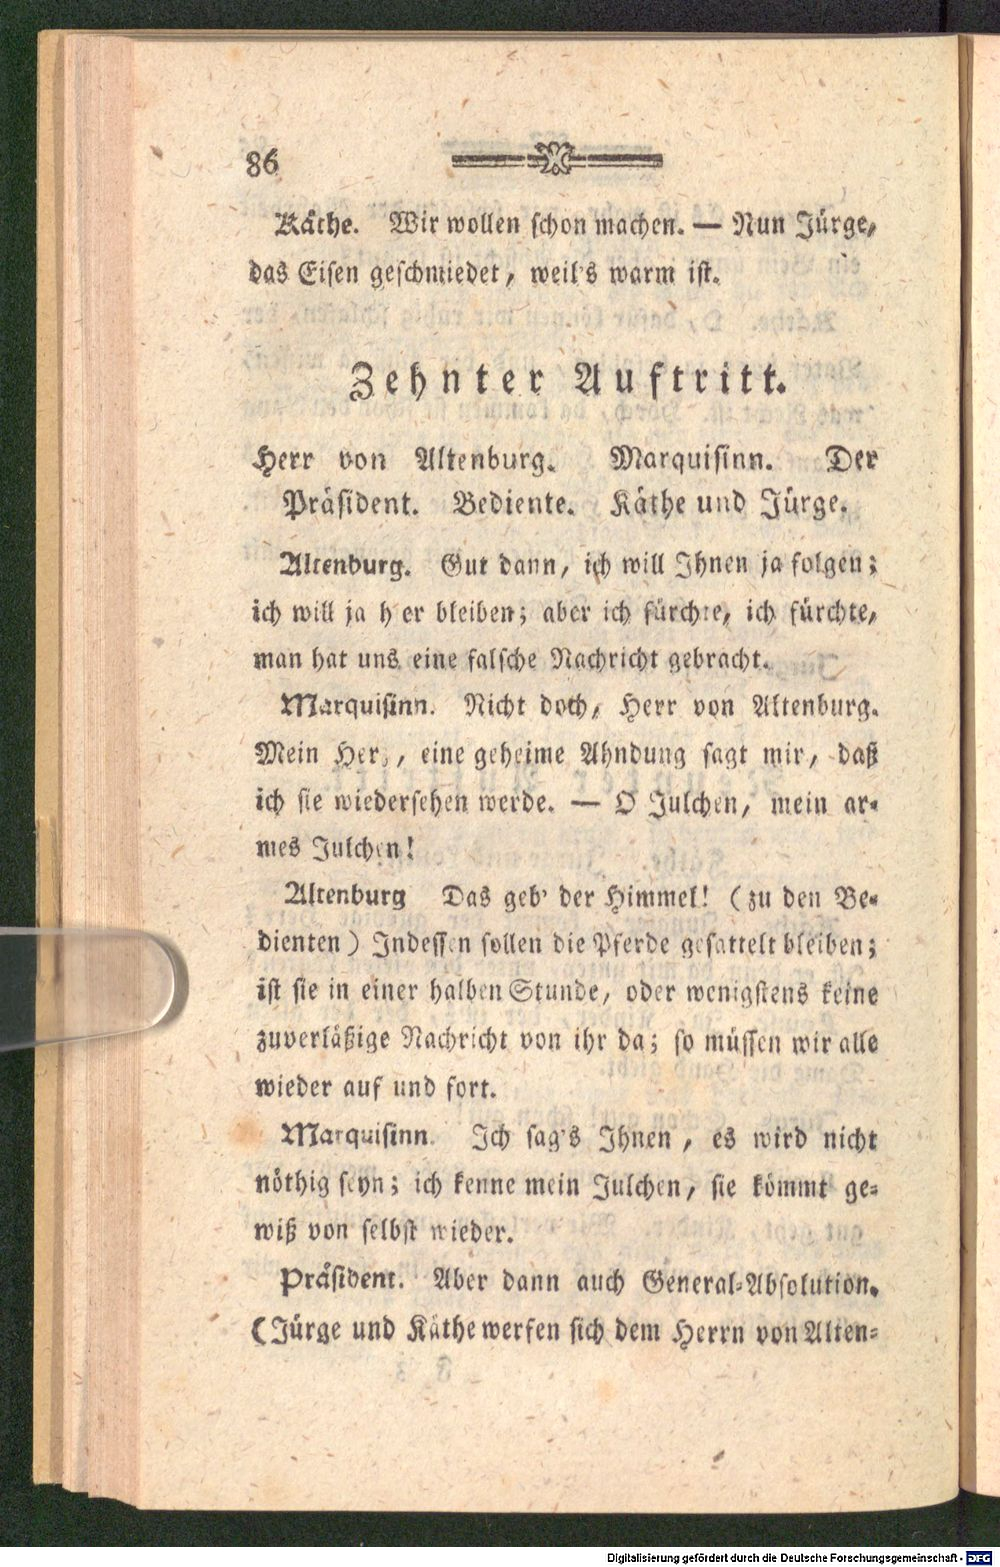 86
Käthe. Wir wollen schon machen. — Nun Jürge,
das Eisen geschmiedet, weil's warm ist.
Zehnter Auftritt.
Herr von Altenburg. Marquisinn. Der
Präsident. Bediente. Käthe und Jürge.
Altenburg. Gut dann, ich will Ihnen ja folgen;
ich will ja h er bleiben; aber ich fürchte, ich fürchte,
man hat uns eine falsche Nachricht gebracht.
Marquisinn. Nicht doch, Herr von Altenburg.
Mein Herz, eine geheime Ahndung sagt mir, daß
ich sie wiedersehen werde. — O Julchen, mein ar-
mes Julchen!
Altenburg Das geb' der Himmel! (zu den Be-
dienten) Indessen sollen die Pferde gesattelt bleiben;
ist sie in einer halben Stunde, oder wenigstens keine
zuverläßige Nachricht von ihr da; so müssen wir alle
wieder auf und fort.
Marquisinn. Ich sag's Ihnen, es wird nicht
nöthig seyn; ich kenne mein Julchen, sie kömmt ge-
wiß von selbst wieder.
Präsident. Aber dann auch General-Absolution.
(Jürge und Käthe werfen sich dem Herrn von Alten-
Digitalisierung gefördert durch die Deutsche Forschungsgemeinschaft - DFG